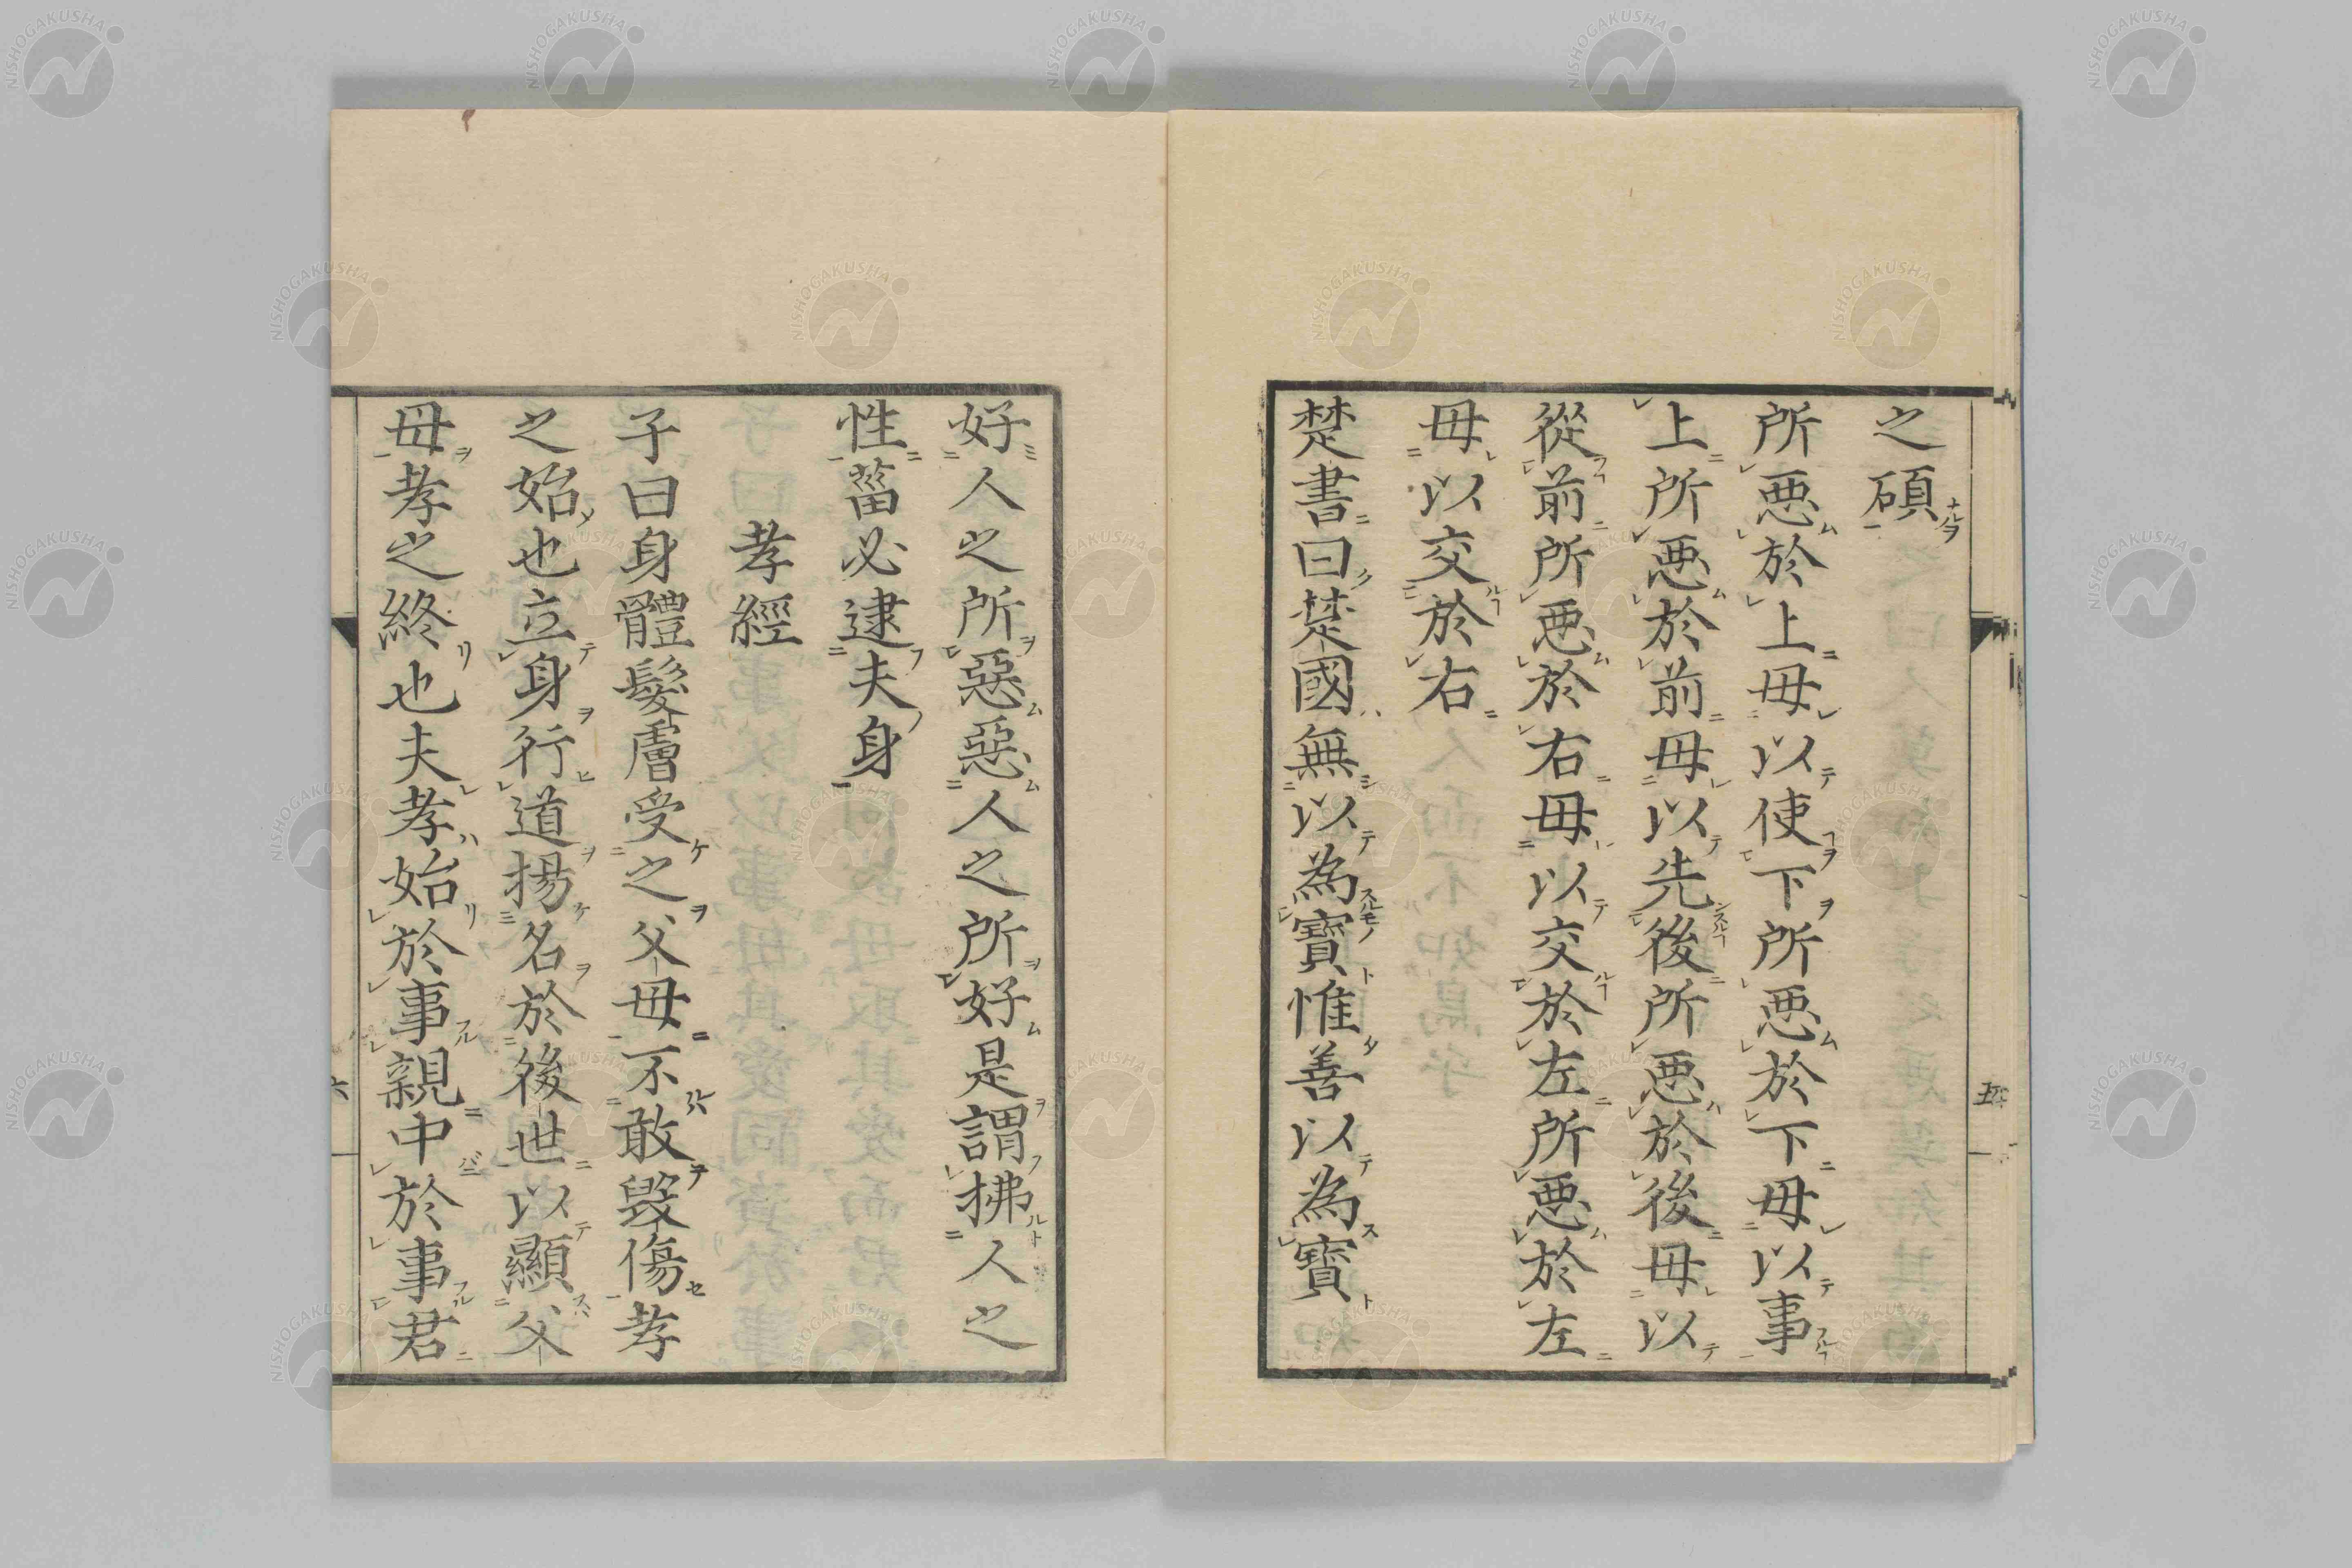 之碩
所惡於上毋以使下所惡於下毋以事
上所惡於前毋以先後所惡於後毋以
從前所惡於右毋以交於左所惡於左
毋以交於右
楚書曰楚國無以為寶惟善以為寶
五
好人之所惡惡人之所好是謂拂人之
性菑必逮夫身
孝經
子曰身體髮膚受之父母不敢毀傷孝
之始也立身行道揚名於後世以顯父
母孝之終也夫孝始於事親中於事君
六
NISHOGAKUSHA